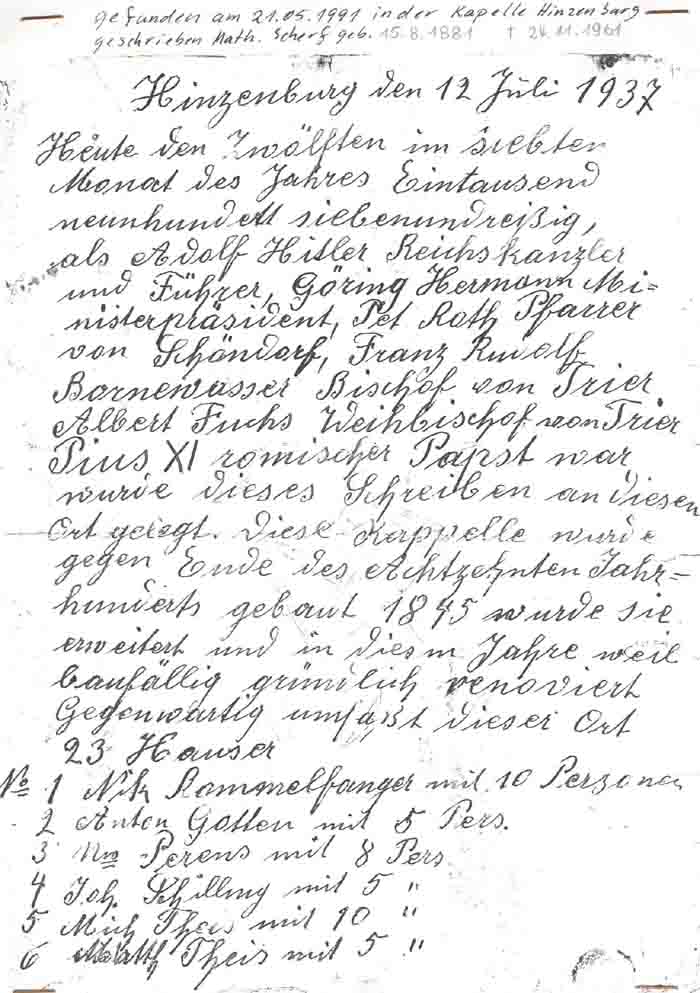 gefunden am 21.05.1991 in der Kapelle Hinzenburg
geschrieben Math. Scherf geb. 15.8.1881 † 24.11.1961
Hinzenburg den 12 Juli 1937
Heute den Zwölften im siebten
Monat des Jahres Eintausend
neunhundert siebenundreißig,
als Adolf Hitler Reichskanzler
und Führer, Göring Hermann Mi=
nisterpräsident, Pet Rath Pfarrer
von Schöndorf, Franz Rudolf
Bornewasser Bischof von Trier
Albert Fuchs Weihbischof von Trier
Pius XI römischer Papst war
wurde dieses Schreiben an diesen
Ort gelegt. Diese Kappelle wurde
gegen Ende des Achtzehnten Jahr=
hunderts gebaut 1845 wurde sie
erweitert und in diesm Jahre weil
baufällig gründlich renoviert
Gegenwärtig umfaßt dieser Ort
23 Hauser
No 1 Nik Rommelfanger mit 10 Personen
2 Anton Gotten mit 5 Pers.
3 Perens mit 8 Pers
4 Joh. Schilling mit 5 "
5 Mich Theis mit 10 "
6 Matth Theis mit 5 "